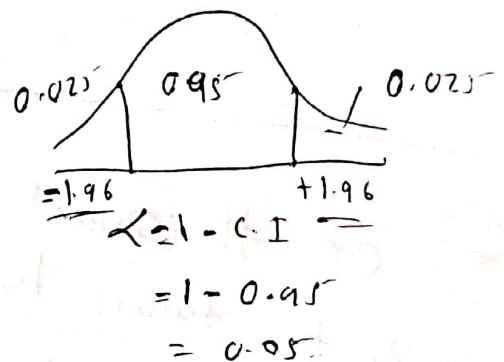 0.025 0.95 0.025
-1.96 +1.96
α = 1 - C.I
= 1 - 0.95
= 0.05